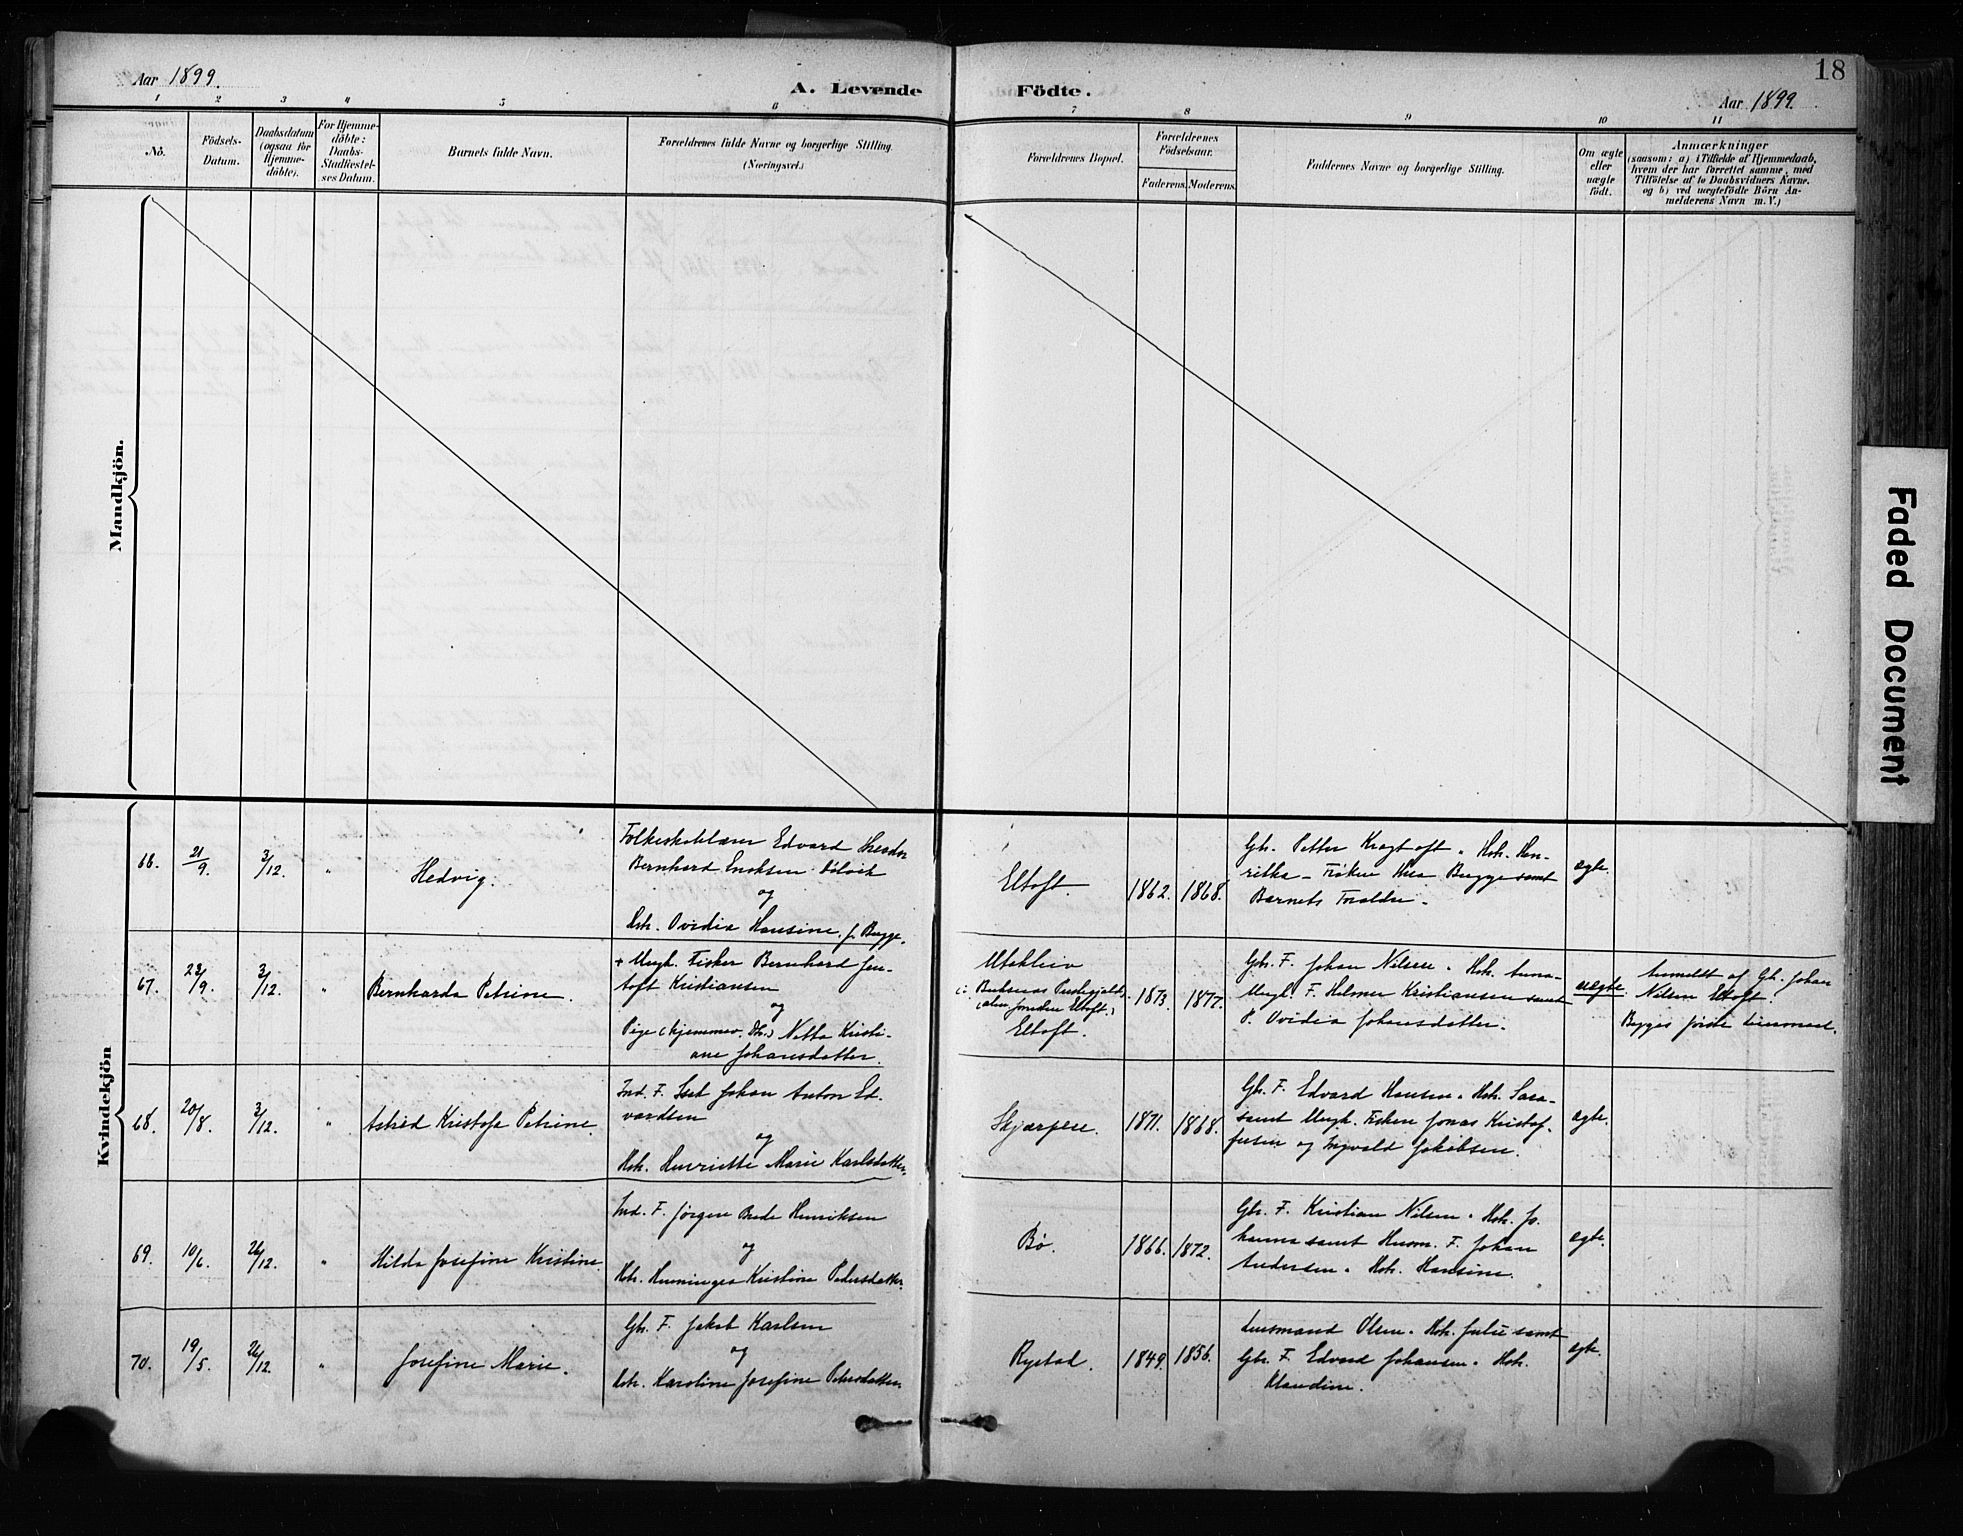 18
Aar 1899.
A. Levende Födte.
Aar 1899.
1 2 3 4 5 6 7 8 9 10 11
No.
Födsels-
Datum.
Daabsdatum
(ogsaa for
Hjemme-
döbte).
For Hjemme-
döbte:
Daabs-
Stadfæstel-
ses Datum.
Barnets fulde Navn.
Forældrenes fulde Navne og borgerlige Stilling.
(Næringsvei.)
Forældrenes Bopæl.
Forældrenes
Födselsaar.
Faderens. Moderens.
Faddernes Navne og borgerlige Stilling.
Om ægte
eller
uægte
födt.
Anmærkninger
(saasom: a) i Tilfælde af Hjemmedaab,
hvem der har forrettet samme, med
Tilföielse af to Daabsvidners Navne,
og b) ved uægtefödte Börn An-
melderens Navn m. V.)
Mandkjön.
Kvindekjön
66.
21/9.
3/12.
"
Hedvig.
Folkeskolelærer Edvard
Bernhard Enoksen
og
Hstr. Ovidia Hansine f. Bugge.
Eltoft.
1862.
1868.
Gbr. Petter Kragtoft . Hstr. Hen-
rikka - Frøken Bugge samt
Barnets Forældre.
ægte.
67.
23/9.
3/12.
"
Bernharda Petrine.
+ Ungk. Fisker Bernhard Jen-
toft Kristiansen
og
Pige (hjemmev. Dtr.) Netta Kristi-
ane Johansdatter.
Utakleiv
Buksnes Præstegjæld.
Eltoft.
1873.
1877.
Gbr. F. Johan Nilsen . Hstr. Anna -
Ungk. F. Helmer Kristiansen samt
P. Ovidia Johansdatter.
uægte
Anmeldt af Gb. Johan
Nilsen Eltoft.
Begges første Leiermaal.
68.
20/8.
3/12.
"
Astrid Kristofa Petrine.
Ind. F. Johan Anton Ed-
vardsen
og
Hstr. Henriette Marie Karlsdatter.
Skjærpen.
1871.
1868.
Gbr. F. Edvard Hansen . Hstr. Sara -
samt Ungk. Fiskere Jonas Kristof-
fersen og Ingvald Jakobsen.
ægte.
69.
10/6.
26/12.
"
Hilda Josefine Kristine.
Ind. F. Jørgen Brede Henriksen
og
Hstr. Henninges Kristine Pedersdatter.
Bø.
1866.
1872.
Gbr. F. Kristian Nilsen . Hstr. Jo-
hanna samt Husm. F. Johan
Andersen . Hstr. Hansine.
ægte.
70.
19/5.
26/12.
"
Josefine Marie.
Gbr. F. Jakob Karlsen
og
Hstr. Karoline Josefine Petersdatter.
Rystad.
1849.
1856.
Lensmand Olsen . Hstr. Julie samt
Gbr. F. Edvard Johansen . Hstr.
Klaudine.
ægte.
Faded Document